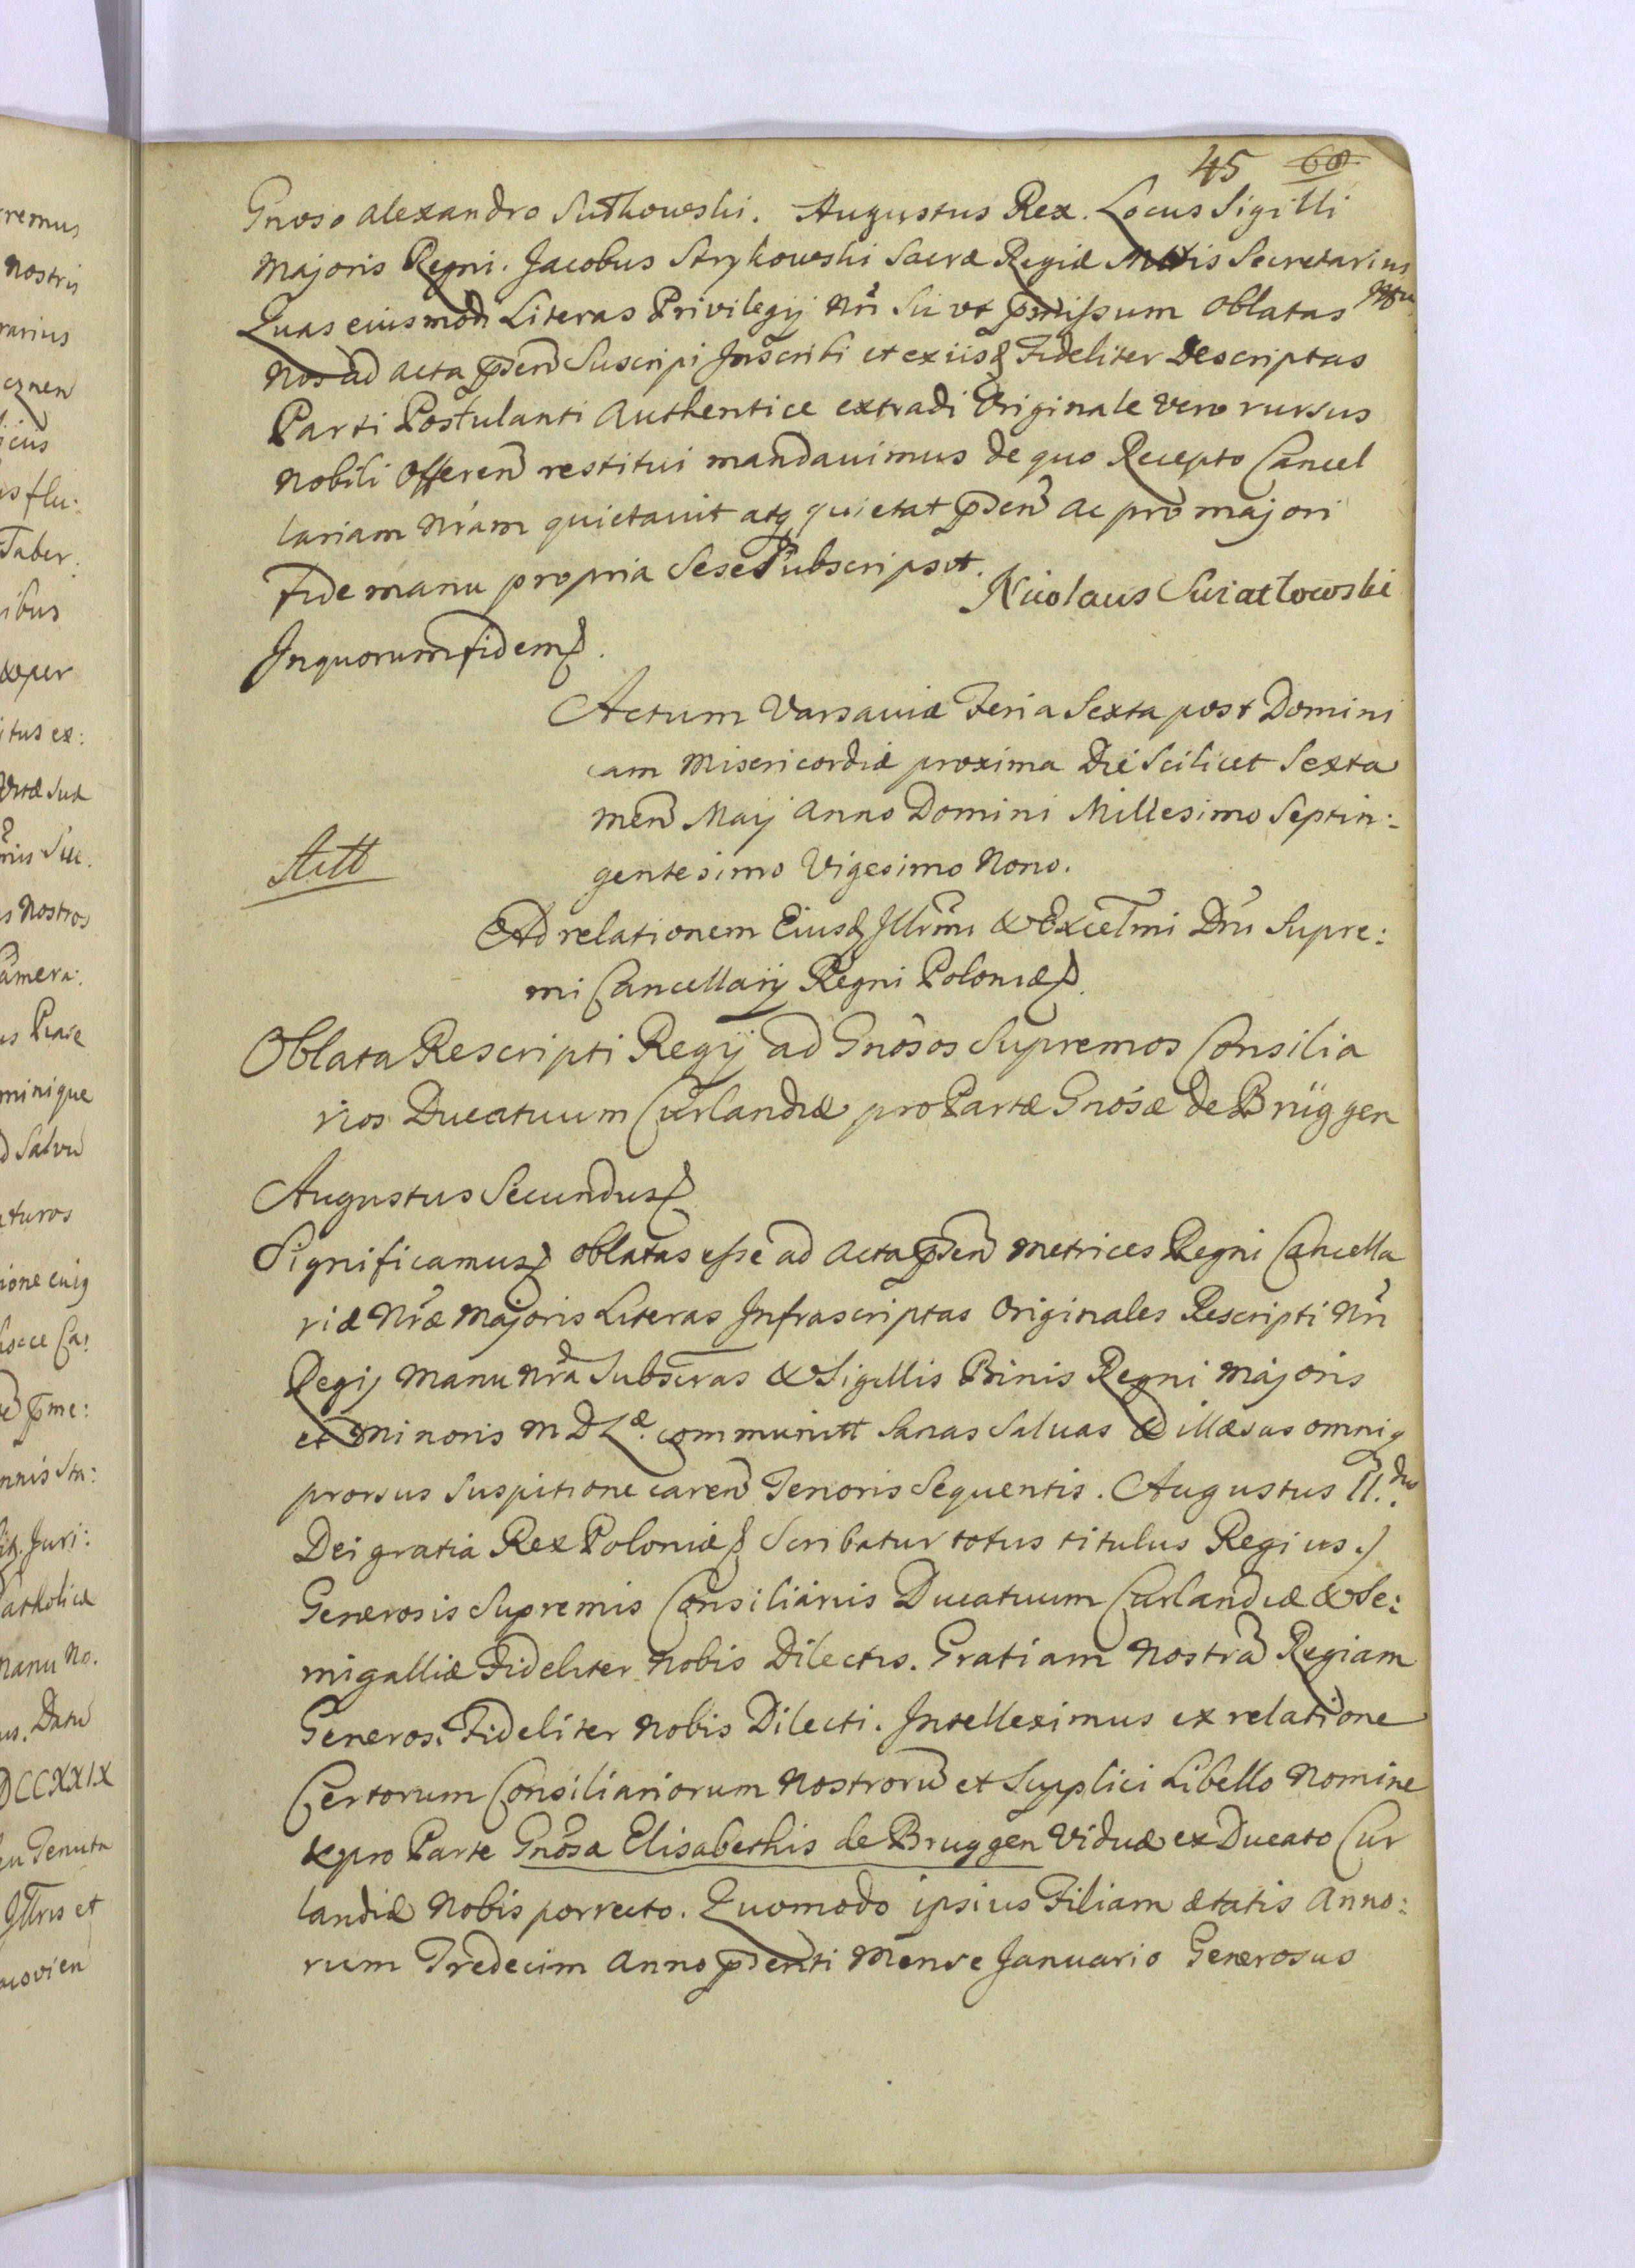 45 68
Gnoso Alexandro Sułkowski. Augustus Rex. Locus Sigilli
Majoris Regni. Jacobus Strykowski Sacræ Regiæ Mttis Secretarius
Quas eiusmodi Literas Privilegij Nri Sic ut pmissum Oblatas
Nos ad Acta psen Suscipi Inscribi et ex iis Fideliter Descriptas
Parti Postulanti Authentice extradi Originale Vero rursus
Nobili Offeren restitui mandavimus de quo Recepto Cancel
lariam Nram quietavit atq quietat psen ac pro majori
fide manu propria Sese Subscripsit. Nicolaus Swiatłowski
In quorum fidem
Actum Varsaviæ Feria Sexta post Domini
cam Misericordiæ proxima Die Scilicet Sexta
men Maij Anno Domini Millesimo Septin:
gentesimo Vigesimo Nono.
Ad relationem Eiusd Illrmi & Excellmi Dni Supre:
mi Cancellarij Regni Poloniæ
Oblata Rescripti Regij ad Gnosos Supremos Consilia
rios Ducatuum Curlandiæ pro Parte Gnosæ de Brüggen
Augustus Secundus
Significamus oblatas esse ad Acta psen Metrices Regni Cancella
riæ Nræ Majoris Literas Infrascriptas Originales Rescripti Nri
Regij Manu Nra Subscras & Sigillis Binis Regni Majoris
et Minoris M D L æ. communitt Sanas Salvas & illæsas omniq
prorsus Suspitione caren Tenoris Sequentis. Augustus II. dus
Dei gratia Rex Poloniæ Scribatur totus titulus Regius./
Generosis Supremis Consiliariis Ducatuum Curlandiæ & Se:
migalliæ Fideliter Nobis Dilectis. Gratiam Nostra Regiam
Generosi Fideliter Nobis Dilecti. Intelleximus ex relatione
Certorum Consiliariorum Nostroru et Supplici Libello Nomine
& pro Parte Gnosa Elisabethis de Bruggen Viduæ ex Ducato Cur
landiæ Nobis porrecto. Quomodo ipsius Filiam ætatis Anno:
rum Tredecim Anno psenti Mense Januario Generosus